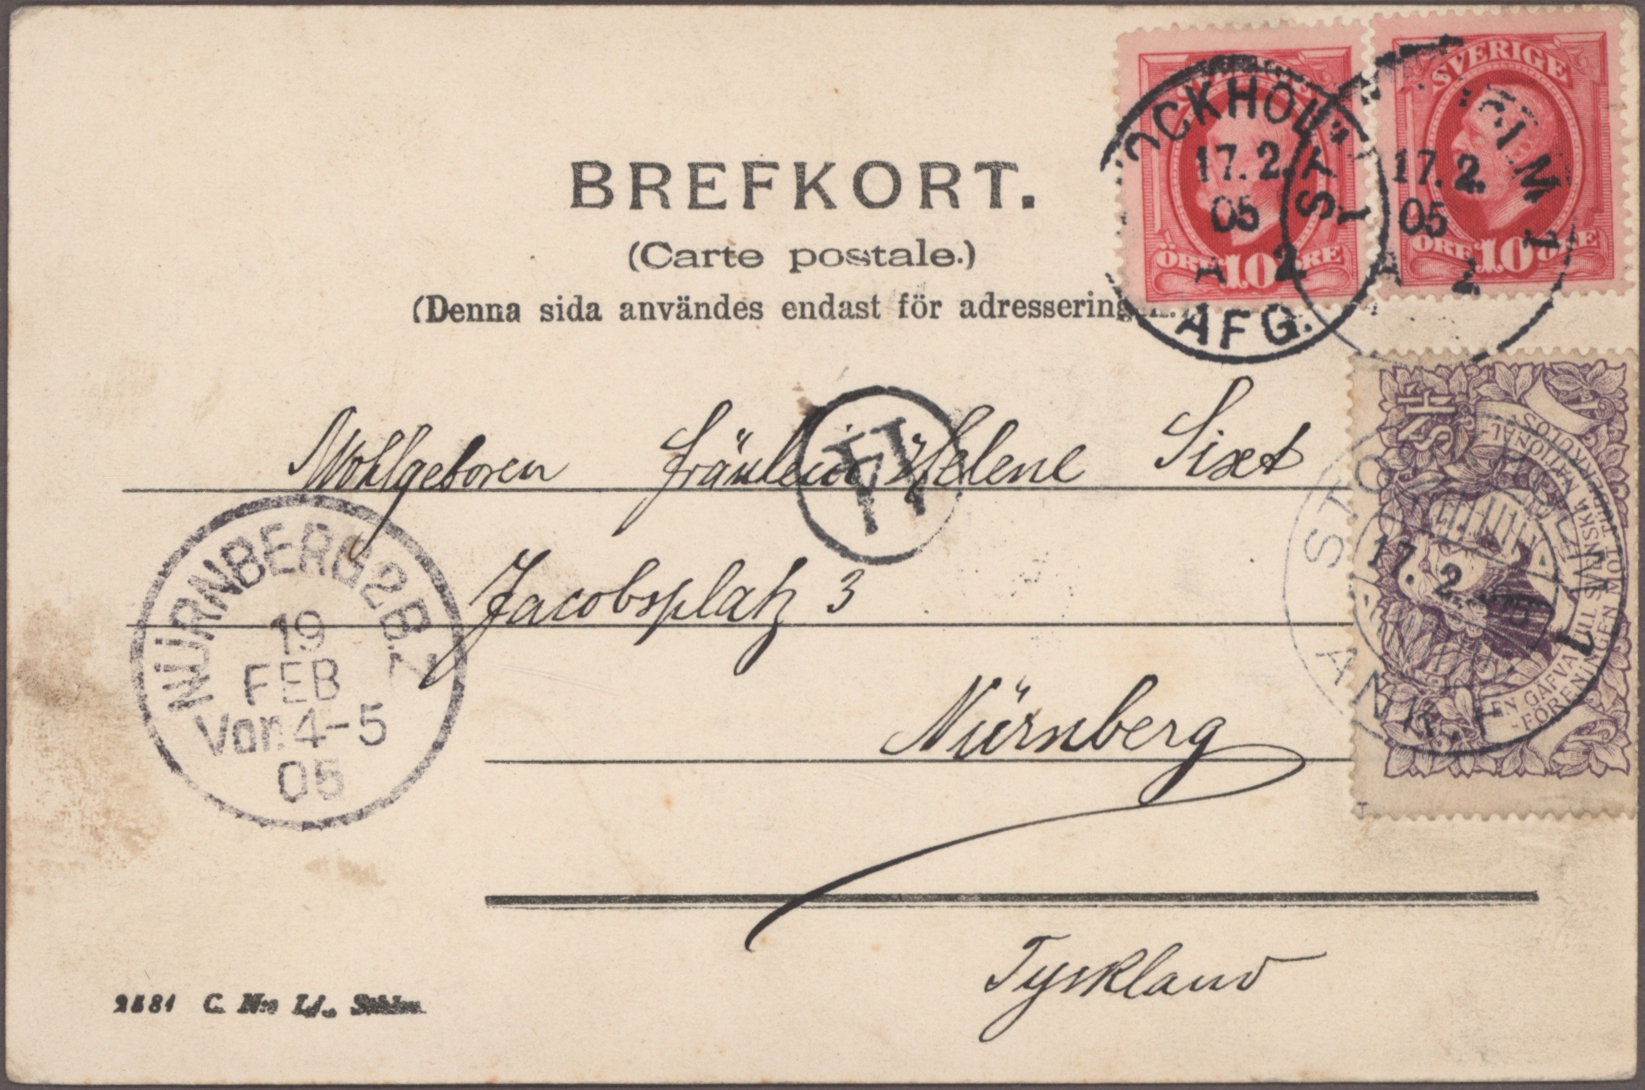 BREFKORT.
(Carte postale.)
(Denna sida användes endast för adressering
SVERIGE
ÖRE 10 ÖRE
ÖRE 10 ÖRE
OCKHOLM 1
17. 2.
05
A 2
AFG.
ST LM 1
17. 2.
05
A 2
Wohlgeboren Fräulein Helene Sixt
Jacobsplatz 3
Nürnberg
Tyskland
NÜRNBERG 2 B.Z
19
FEB
Vor. 4-5
05
STO
17. 2.
ANK.
1
EN GÅFVA TILL SVENSKA NATIONAL
-FÖRENINGEN MOT TUBERKULOS
2581 C. N:s Lj., Sthlm.